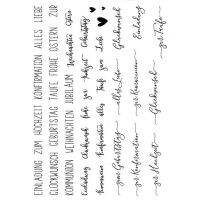 EINLADUNG ZUM HOCHZEIT KONFIRMATION ALLES LIEBE
GLÜCKWUNSCH GEBURTSTAG TAUFE FROHE OSTERN ZUR
KOMMUNION WEIHNACHTEN JUBILÄUM Weihnachten Ostern
Einladung Glückwunsch frohe zur Hochzeit Geburtstag
Kommunion Konfirmation alles Taufe zum Liebe
zum Geburtstag alles Liebe Glückwunsch
Einladung
zur Hochzeit zur Taufe